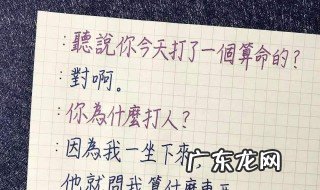 ：聽說你今天打了一個算命的？
：對啊。
：你為什麼打人？
：因為我一坐下來，
他就問我算什麼東西
广东龙网